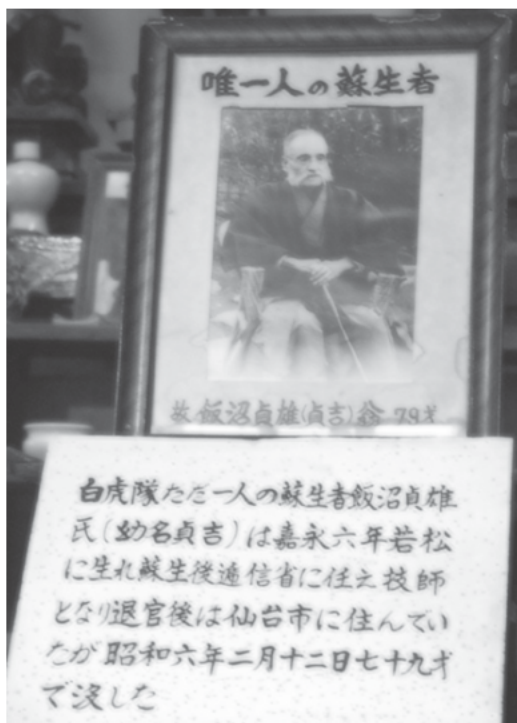 唯一人の蘇生者
故飯沼貞雄(貞吉)翁 79才
白虎隊ただ一人の蘇生者飯沼貞雄
氏(幼名貞吉)は嘉永六年若松
に生れ蘇生後逓信省に任え技師
となり退官後は仙台市に住んでい
たが昭和六年二月十二日七十九才
で没した